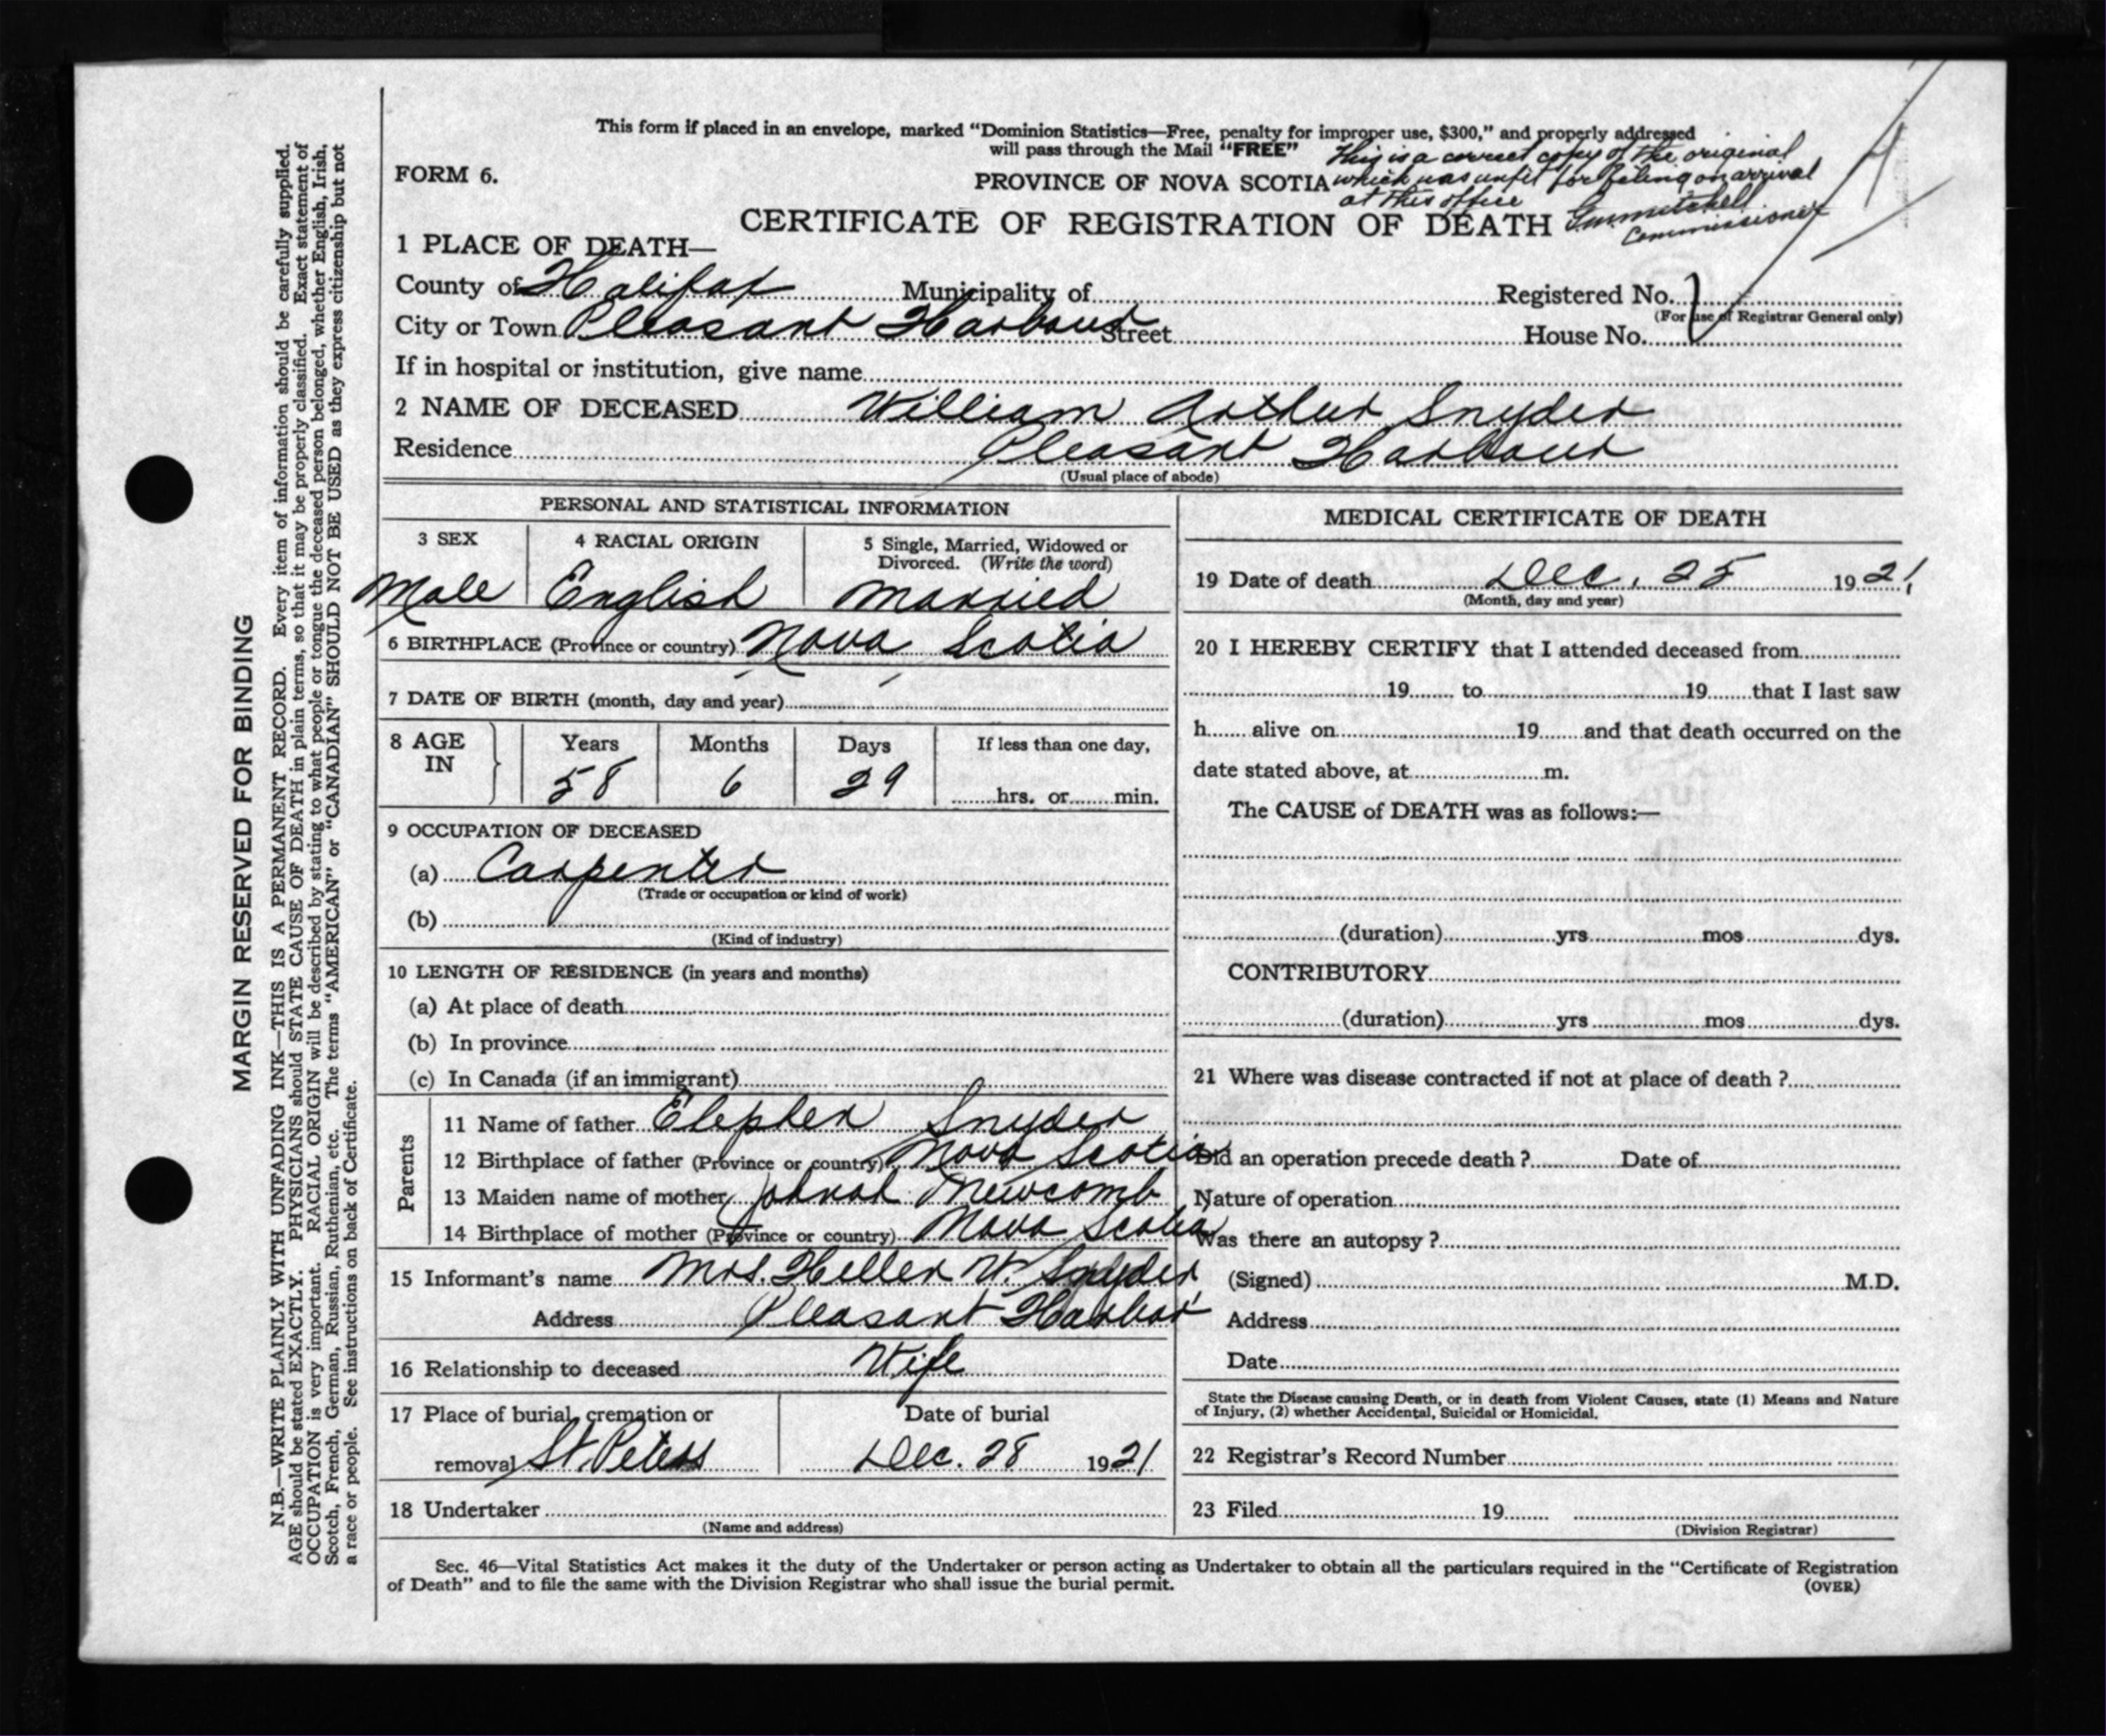 This form if placed in an envelope, marked "Dominion Statistics—Free, penalty for improper use, $300," and properly addressed
will pass through the Mail "FREE"
This is a correct copy of the original
which was unfit for filing on arrival
at this office
Commissioner
FORM 6.
PROVINCE OF NOVA SCOTIA
CERTIFICATE OF REGISTRATION OF DEATH
1 PLACE OF DEATH—
County of Halifax Municipality of Registered No.
(For use of Registrar General only)
City or Town Pleasant Harbour Street House No.
If in hospital or institution, give name
2 NAME OF DECEASED William Arthur Snyder
Residence Pleasant Harbour
(Usual place of abode)
PERSONAL AND STATISTICAL INFORMATION
3 SEX 4 RACIAL ORIGIN 5 Single, Married, Widowed or
Divorced. (Write the word)
Male English Married
6 BIRTHPLACE (Province or country) Nova Scotia
7 DATE OF BIRTH (month, day and year)
8 AGE Years Months Days If less than one day,
IN 58 6 29 hrs. or min.
9 OCCUPATION OF DECEASED
(a) Carpenter
(Trade or occupation or kind of work)
(b)
(Kind of industry)
10 LENGTH OF RESIDENCE (in years and months)
(a) At place of death
(b) In province
(c) In Canada (if an immigrant)
Parents
11 Name of father Snyder
12 Birthplace of father (Province or country) Nova Scotia
13 Maiden name of mother
14 Birthplace of mother (Province or country) Nova Scotia
15 Informant's name Mrs. Hellen W. Snyder
Address Pleasant Harbor
16 Relationship to deceased Wife
17 Place of burial, cremation or Date of burial
removal St. Peters Dec. 28 1921
18 Undertaker
(Name and address)
MEDICAL CERTIFICATE OF DEATH
19 Date of death Dec. 25 1921
(Month, day and year)
20 I HEREBY CERTIFY that I attended deceased from
19 to 19 that I last saw
h alive on 19 and that death occurred on the
date stated above, at m.
The CAUSE of DEATH was as follows:—
(duration) yrs mos dys.
CONTRIBUTORY
(duration) yrs mos dys.
21 Where was disease contracted if not at place of death ?
Did an operation precede death ? Date of
Nature of operation
Was there an autopsy ?
(Signed) M.D.
Address
Date
State the Disease causing Death, or in death from Violent Causes, state (1) Means and Nature
of Injury, (2) whether Accidental, Suicidal or Homicidal.
22 Registrar's Record Number
23 Filed 19
(Division Registrar)
Sec. 46—Vital Statistics Act makes it the duty of the Undertaker or person acting as Undertaker to obtain all the particulars required in the "Certificate of Registration
of Death" and to file the same with the Division Registrar who shall issue the burial permit.
(OVER)
MARGIN RESERVED FOR BINDING
N.B.—WRITE PLAINLY WITH UNFADING INK—THIS IS A PERMANENT RECORD. Every item of information should be carefully supplied.
AGE should be stated EXACTLY. PHYSICIANS should STATE CAUSE OF DEATH in plain terms, so that it may be properly classified. Exact statement of
OCCUPATION is very important. RACIAL ORIGIN will be described by stating to what people or tongue the deceased person belonged, whether English, Irish,
Scotch, French, German, Russian, Ruthenian, etc. The terms "AMERICAN" or "CANADIAN" SHOULD NOT BE USED as they express citizenship but not
a race or people. See instructions on back of Certificate.